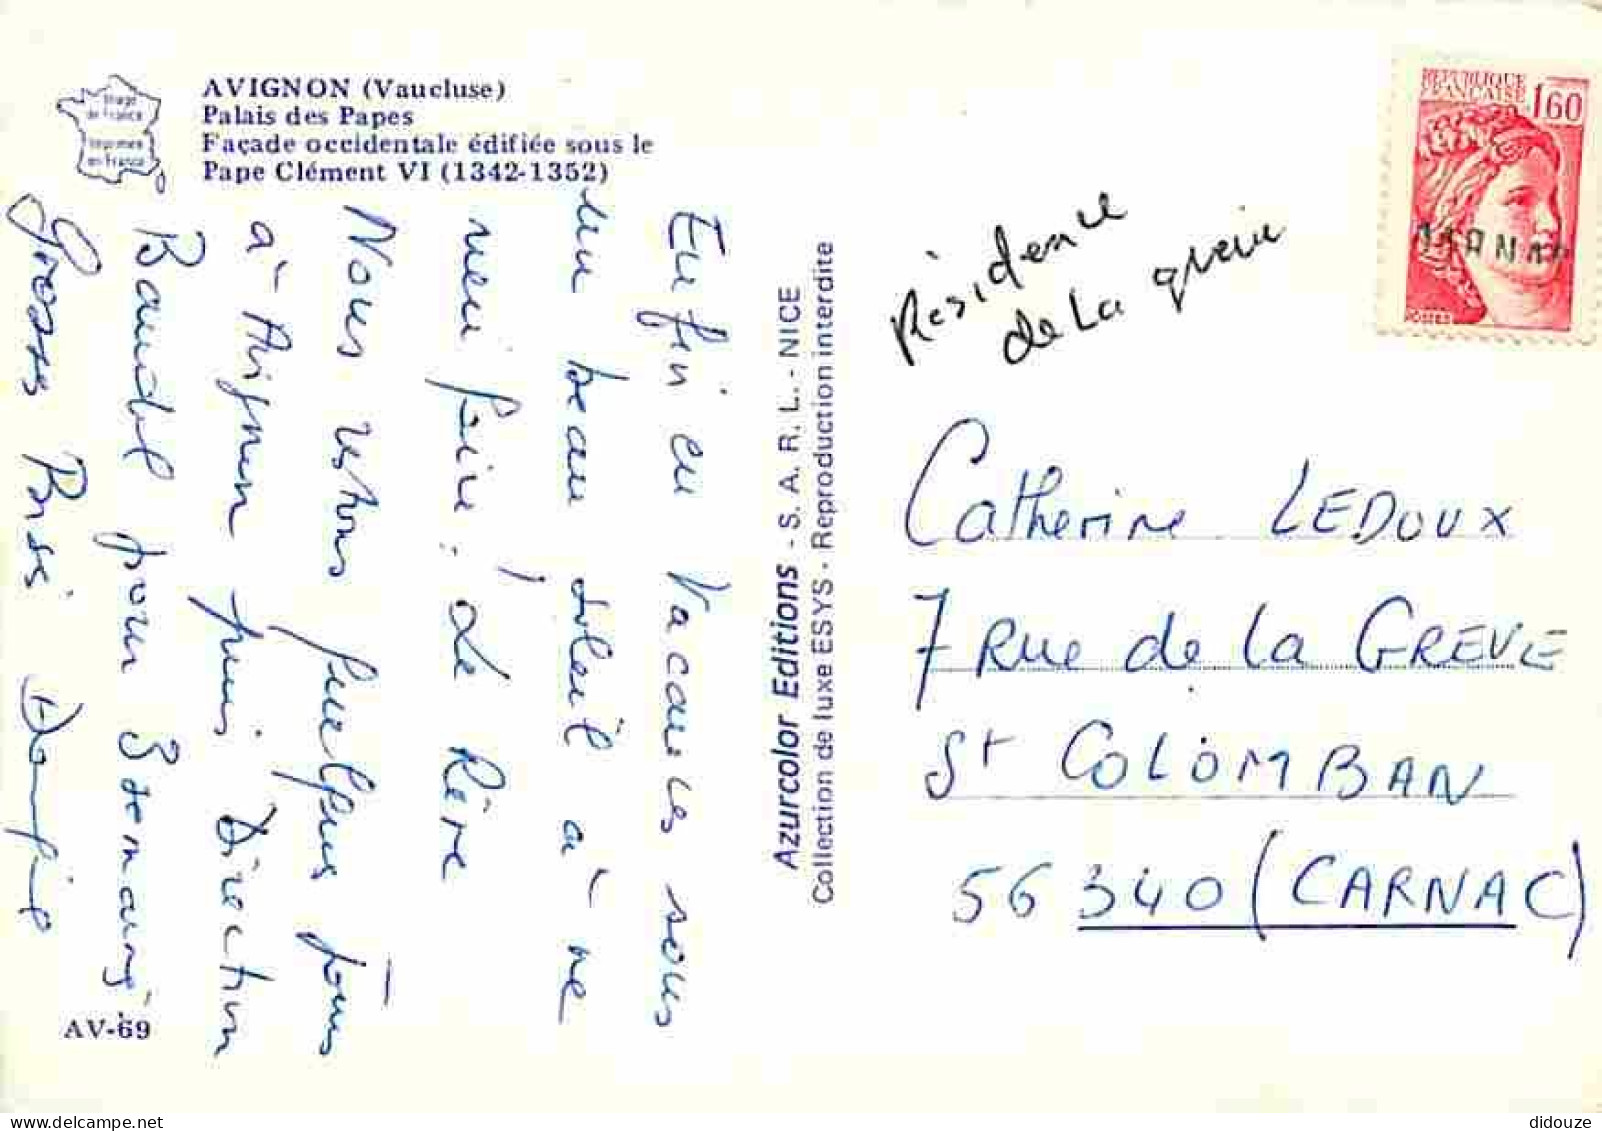 AVIGNON (Vaucluse)
Palais des Papes
Façade occidentale édifiée sous le
Pape Clément VI (1342-1352)
Image
de France
Imprimée
en France
Enfin en Vacances sous
un beau soleil à ne
rien faire, Le Rêve
Nous restons quelques jours
à Avignon puis Direction
Bandol pour 3 semaines.
Grosses Bises
AV-69
Azurcolor Editions - S. A. R. L. - NICE
Collection de luxe ESYS - Reproduction interdite
REPUBLIQUE
FRANCAISE
1,60
POSTES
CARNAC
Résidence
de La
Catherine LEDOUX
7 Rue de la GREVE
St COLOMBAN
56 340 (CARNAC)
didouze